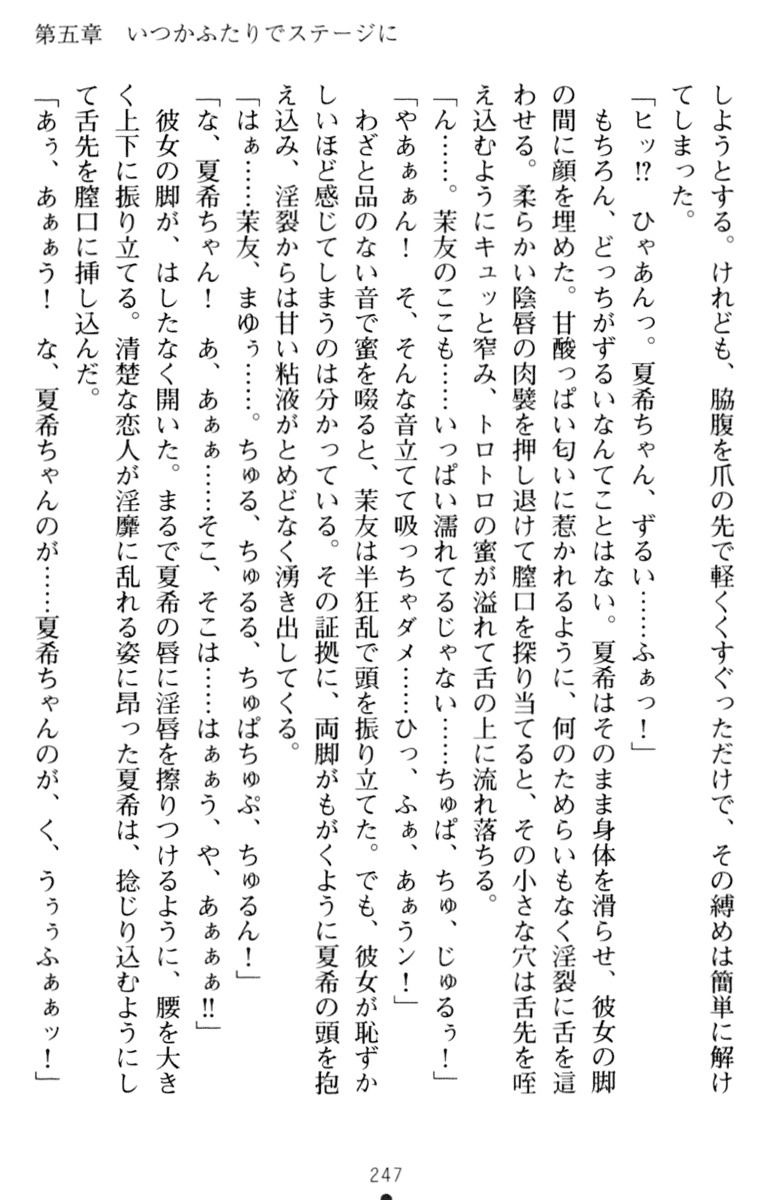 第五章　いつかふたりでステージに
しようとする。けれども、脇腹を爪の先で軽くくすぐっただけで、その縛めは簡単に解け
てしまった。
「ヒッ!?　ひゃあんっ。夏希ちゃん、ずるい……ふぁっ！」
もちろん、どっちがずるいなんてことはない。夏希はそのまま身体を滑らせ、彼女の脚
の間に顔を埋めた。甘酸っぱい匂いに惹かれるように、何のためらいもなく淫裂に舌を這
わせる。柔らかい陰唇の肉襞を押し退けて膣口を探り当てると、その小さな穴は舌先を咥
え込むようにキュッと窄み、トロトロの蜜が溢れて舌の上に流れ落ちる。
「ん……。茉友のここも……いっぱい濡れてるじゃない……ちゅぱ、ちゅ、じゅるぅ！」
「やあぁぁん！　そ、そんな音立てて吸っちゃダメ……ひっ、ふぁ、あぁうン！」
わざと品のない音で蜜を啜ると、茉友は半狂乱で頭を振り立てた。でも、彼女が恥ずか
しいほど感じてしまうのは分かっている。その証拠に、両脚がもがくように夏希の頭を抱
え込み、淫裂からは甘い粘液がとめどなく湧き出してくる。
「はぁ……茉友、まゆぅ……。ちゅる、ちゅるる、ちゅぱちゅぷ、ちゅるん！」
「な、夏希ちゃん！　あ、あぁぁ……そこ、そこは……はぁぁう、や、あぁぁぁ!!」
彼女の脚が、はしたなく開いた。まるで夏希の唇に淫唇を擦りつけるように、腰を大き
く上下に振り立てる。清楚な恋人が淫靡に乱れる姿に昂った夏希は、捻じり込むようにし
て舌先を膣口に挿し込んだ。
「あぅ、あぁぁう！　な、夏希ちゃんのが……夏希ちゃんのが、く、うぅぅふぁぁッ！」
247